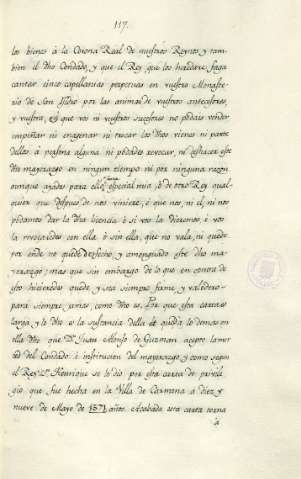 117.
los bienes à la Corona Real de nuestros Reynos y tam-
bien el dho Condado, y que el Rey que los heredare, haga
cantar cinco capellanias perpetuas en vuestro Monaste-
rio de San Isidro por las animas de vuestros antecesores,
y vuestra, et que vos ni vuestros succesores no podais vender
empeñar ni enagenar ni trocar los dhos vienes ni parte
dellos à persona alguna ni podades revocar, ni desfacer este
dho mayorazgo en ningun tiempo ni por ninguna razon
aunque ayades para ello licencia especial mia, ò de otro Rey qual-
quiera que despues de nos viniere, è que nos, ni el, ni nos
podamos dar la dha licencia è si vos la dieremos, è vos
la revocaredes con ella ò sin ella, que no vala, ni quede
por ende no quede desfecho, y enagenado este dho ma-
yorazgo; mas que sin embargo de lo que en contra de
esto hicieredes quede, y sea siempre firme, y valedero
para siempre jamas, como dho es. Por que esta carta es
larga, y lo dho es la sustancia della et queda lo demas en
ella dho que Dn. Juan Alonso de Guzman acepto la mer-
ced del Condado, è institucion del mayorazgo y como segun
el Rey Dn. Henrique se lo diò por esta carta de privile-
gio, que fue hecha en la Villa de Carmona à diez y
nueve de Mayo de 1371 años. Acabada esta carta torna
à